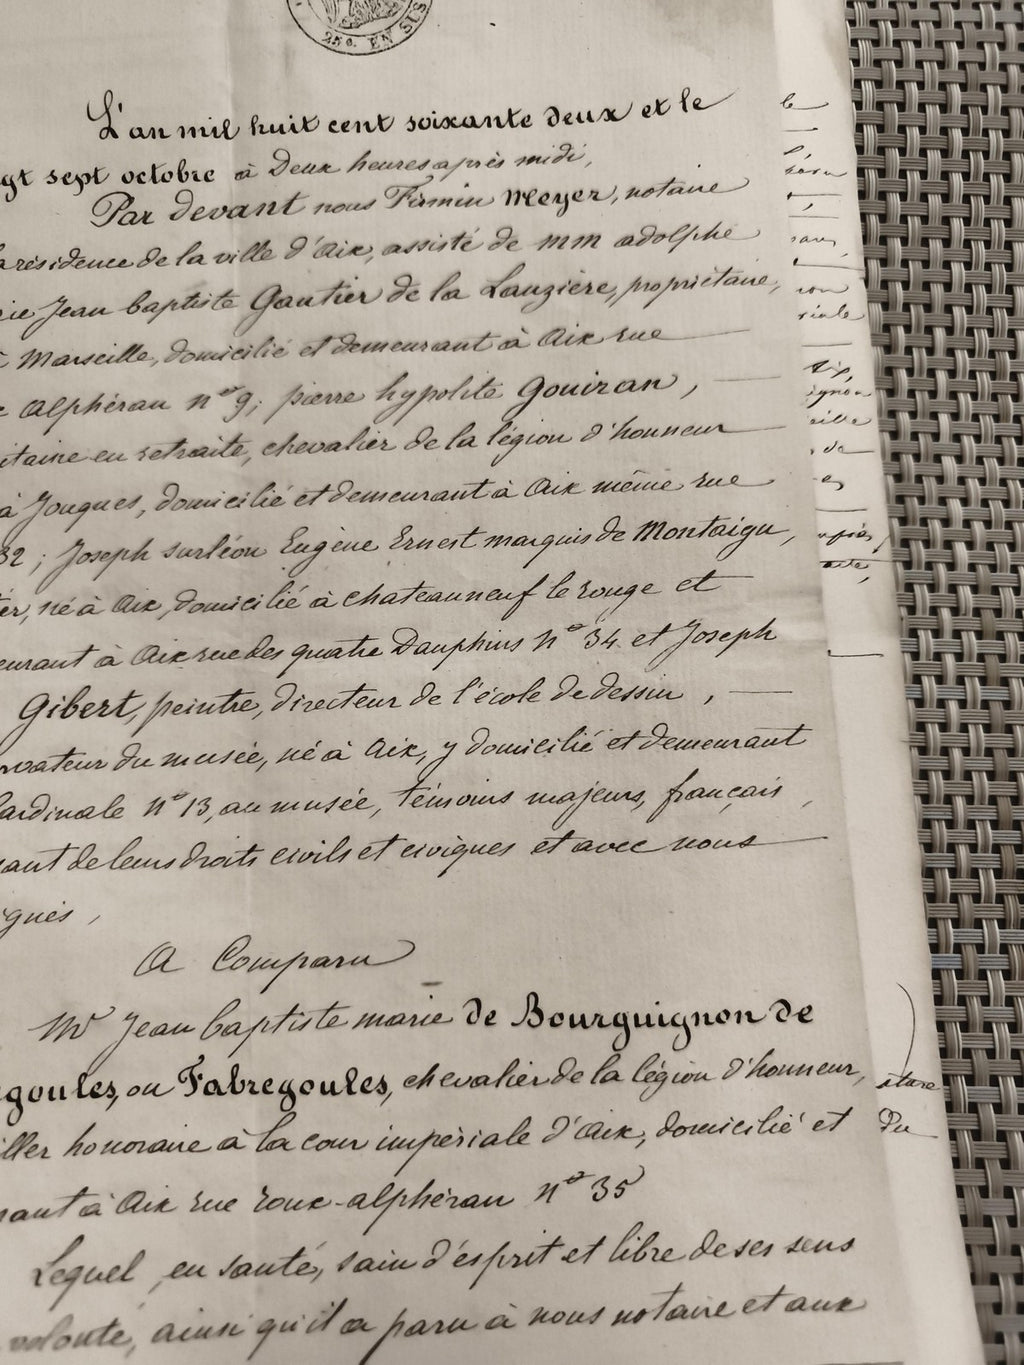 25c. EN SUS
L'an mil huit cent soixante deux et le
gt sept octobre à Deux heures après midi,
Par devant nous Firmin Meyer, notaire
résidence de la ville d'aix, assisté de mm adolphe
ie Jean baptiste Gautier de la Lauzière, propriétaire,
Marseille, domicilié et demeurant à aix rue
alphéran n° 9; pierre hypolite Gouiran,
itaine en retraite, chevalier de la légion d'honneur
à Jouques, domicilié et demeurant à aix même rue
32; Joseph surléon Eugène Ernest marquis de Montaigu,
er, né à aix, domicilié à chateauneuf le rouge et
eurant à aix rue des quatre Dauphins n° 34 et Joseph
Gibert, peintre, directeur de l'école de dessin,
rvateur du musée, né à aix, y domicilié et demeurant
ardinale n° 13, au musée, témoins majeurs, français,
sant de leurs droits civils et civiques et avec nous
ignés,
A Comparu
Mr Jean baptiste marie de Bourguignon de
goules, ou Fabregoules, chevalier de la légion d'honneur,
iller honoraire à la cour impériale d'aix, domicilié et
rant à aix rue roux-alphéran n° 35
Lequel, en santé, sain d'ésprit et libre de ses sens
volonté, ainsi qu'il a paru à nous notaire et aux
le
riale
de
Du